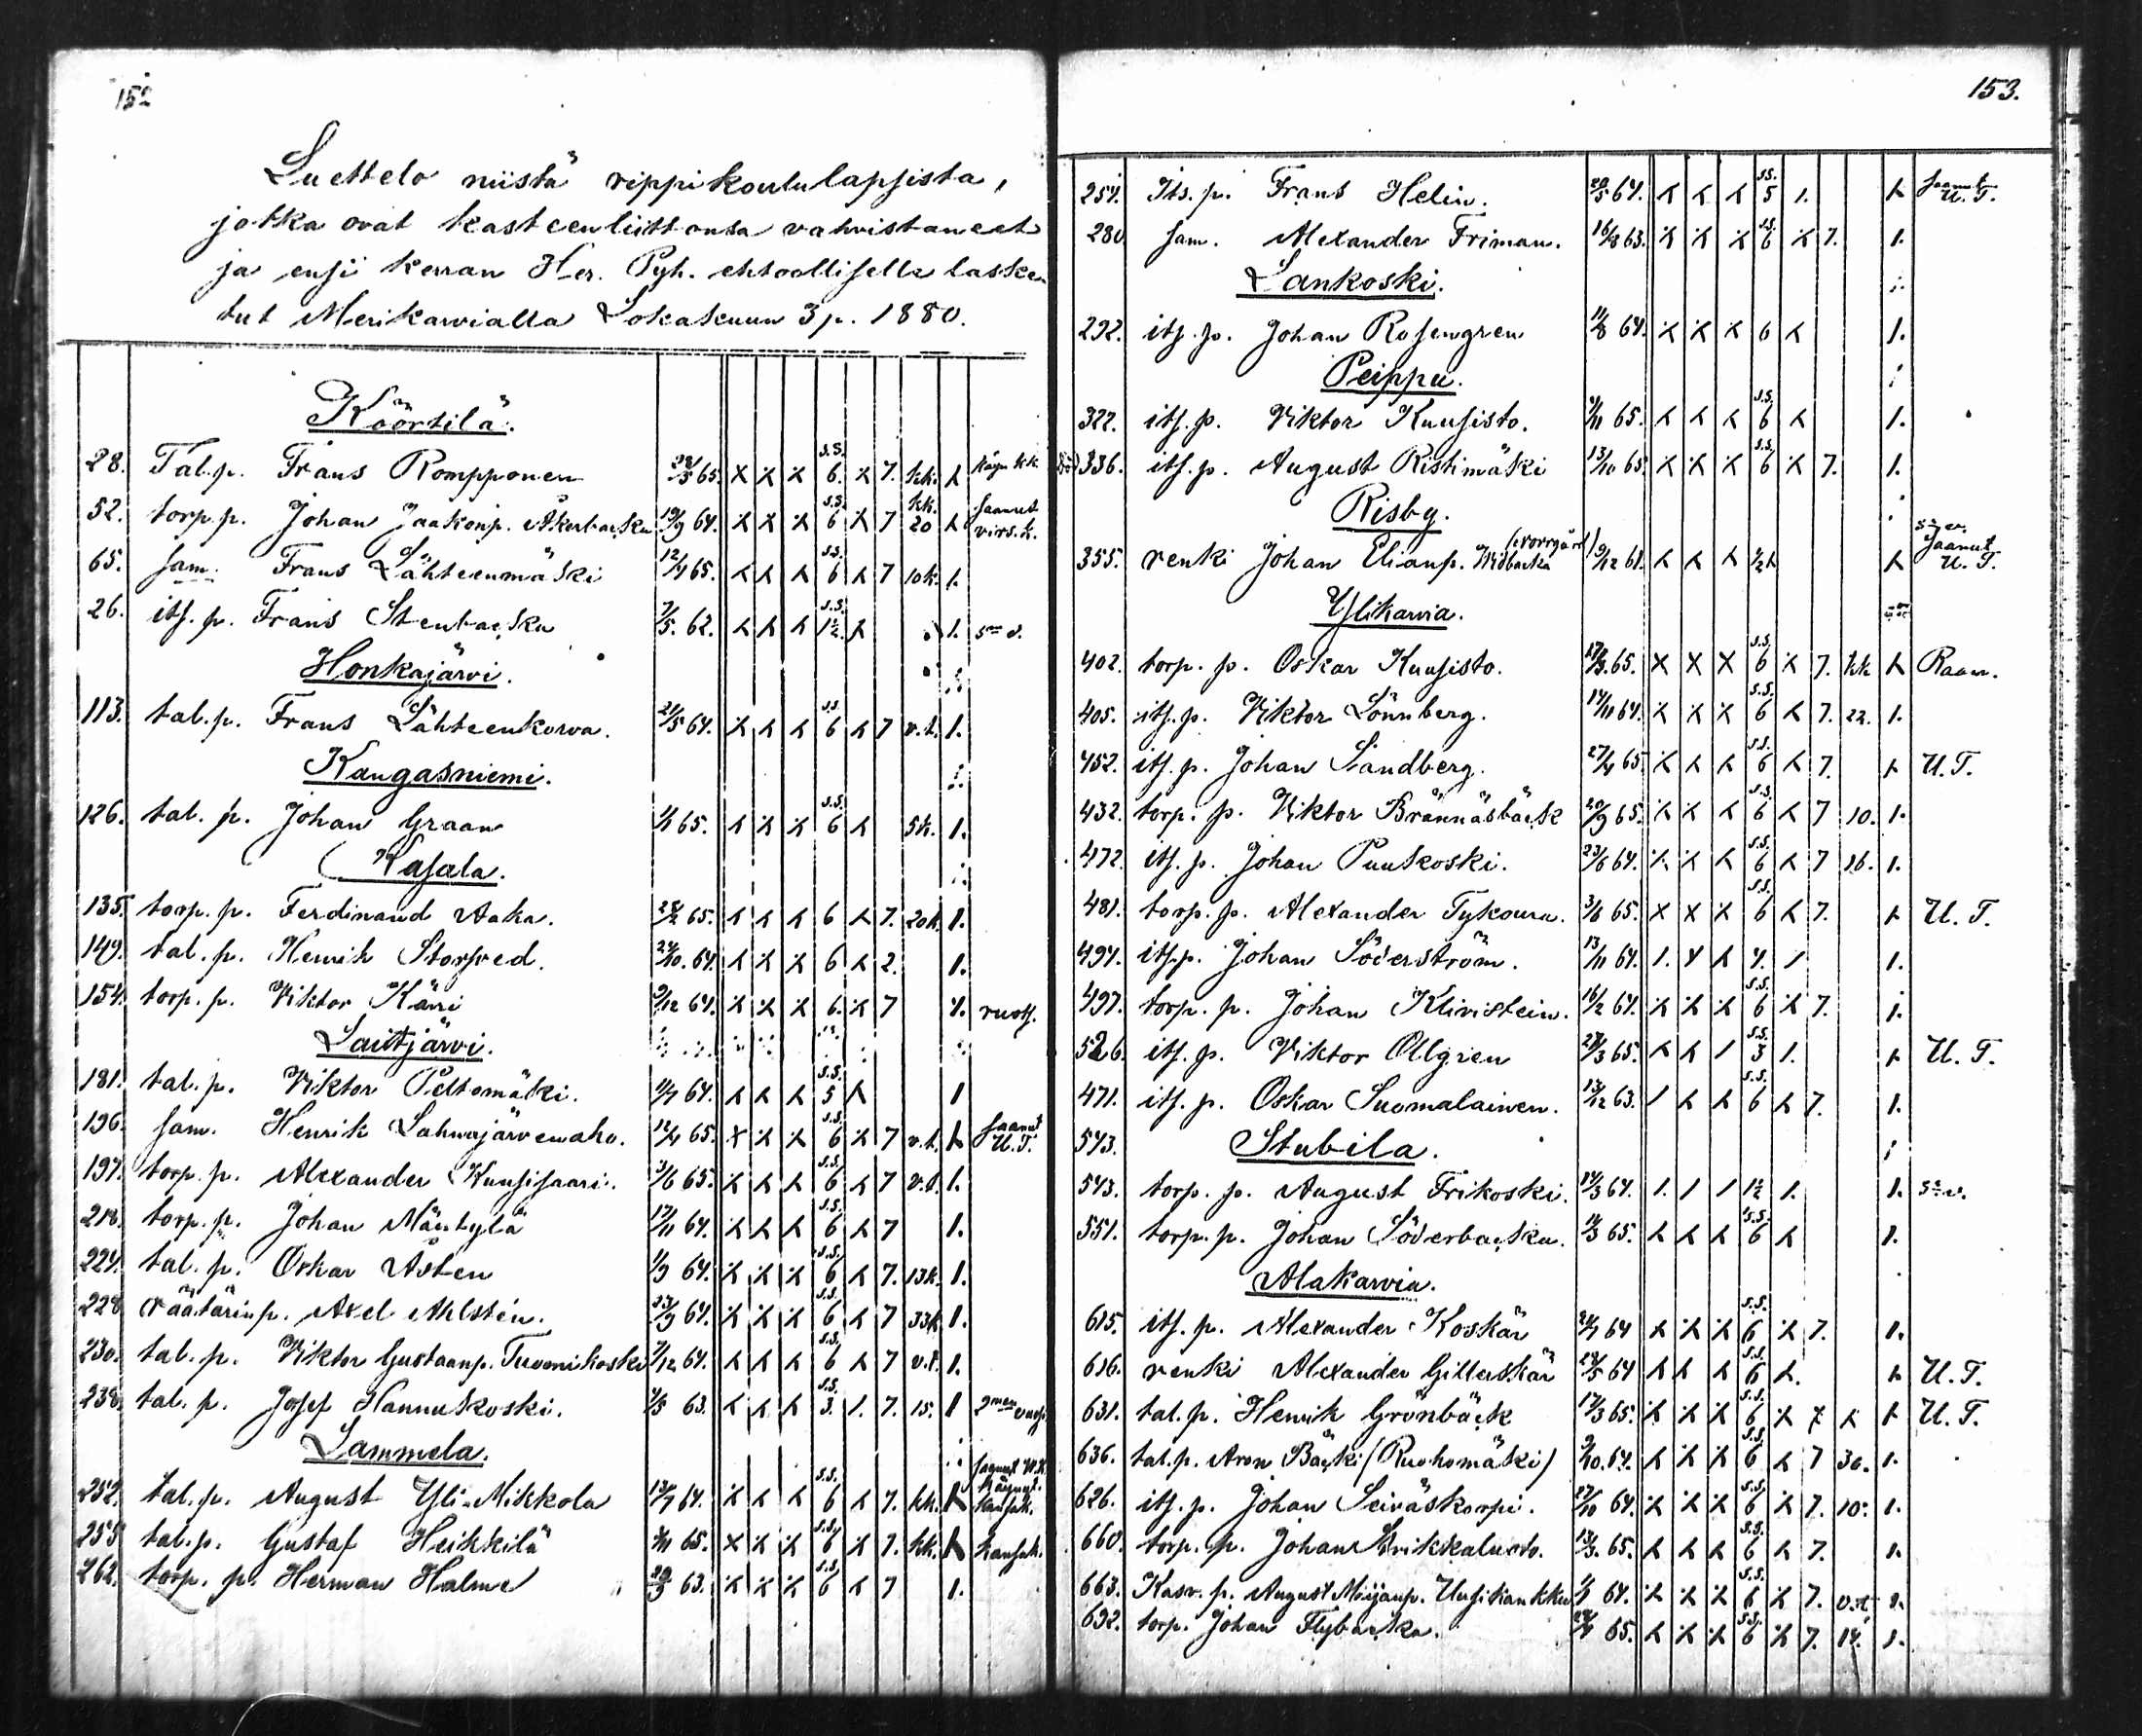 152
Luettelo niistä rippikoululapsista,
jotka ovat kasteenliittonsa vahvistaneet
ja ensi kerran Her. Pyh. ehtoolliselle laske-
tut Merikarvialla Lokakuun 3 p. 1880.
Köörtilä.
28. Tal.p. Frans Rompponen 28/3 65. x x x s.s. 6. x 7. kk. x Käyn. kk.
52. torp.p. Johan Jaakonp. Åkerbacka 19/9 64. x x x s.s. 6 x 7 kk. 20 x saanut virs.k.
65. sam. Frans Lähteenmäki 12/4 65. x x x s.s. 6 x 7 10k. 1.
26. its. p. Frans Stenbacka 7/5. 62. x x x s.s. 1½. x 1.
Honkajärvi.
113. tal.p. Frans Lähteenkorva. 21/5 64. x x x s.s. 6 x 7 v.t. 1.
Kangasniemi.
126. tal. p. Johan Graan 65. x x x s.s. 6 x 5k. 1.
Kasala.
135. torp. p. Ferdinand Aaka. 28/2 65. x x x 6 x 7. 20k. 1.
149. tal. p. Henrik Storfved. 24/10. 64. x x x 6 x 2. 1.
154. torp. p. Viktor Kärri 9/12 64. x x x 6. x 7 1. ruots.
Lauttjärvi.
181. tal. p. Viktor Peltomäki. 64. x x x s.s. 5 x 1
196. sam. Henrik Lahnajärvenaho. 12/4 65. x x x s.s. 6 x 7 v.t. x saanut U.T.
197. torp. p. Alexander Kuusisaari. 3/6 65. x x x s.s. 6 x 7 v.t. 1.
218. torp. p. Johan Mäntylä 17/11 64. x x x s.s. 6 x 7 1.
224. tal. p. Oskar Åsten 1/9 64. x x x s.s. 6 x 7. 13k. 1.
228 räätärinp. Axel Ahlstén. 23/9 64. x x x s.s. 6 x 7 33k 1.
230. tal. p. Viktor Gustaanp. Tuomikoski 7/12 64. x x x s.s. 6 x 7 v.t. 1.
238. tal. p. Josef Hannukoski. 63. x x x s.s. 3. 1. 7. 15. 1
Lammela.
252. tal. p. August Yli-Mikkola 13/7 64. x x x s.s. 6 x 7. kk. x kansak.
255 tal. p. Gustaf Heikkilä 65. x x x s.s. 6 x 7. kk. x kansak.
262. torp. p. Herman Halme 63. x x x s.s. 6 x 7 1.
153.
254. Its. p. Frans Helin. 64. x x x s.s. 5 1. x saanut U.T.
280 sam. Alexander Friman. 16/8 63. x x x s.s. 6 x 7. 1.
Lankoski.
292. its. p. Johan Rosengren 11/8 64. x x x 6 x 1.
Peippu.
322. its. p. Viktor Kuusisto. 65. x x x s.s. 6 x 1.
336. its. p. August Ristimäki 13/10 65. x x x s.s. 6 x 7. 1.
Risby.
355. renki Johan Elianp. Widbacka 9/12 61. x x x ½ x x saanut U.T.
Ylikarvia.
402. torp. p. Oskar Kuusisto. 65. x x x s.s. 6 x 7. kk x Raam.
405. its. p. Viktor Lönnberg. 14/11 64. x x x s.s. 6 x 7. 22. 1.
452. its. p. Johan Sandberg. 27/4 65. x x x s.s. 6 x 7. x U.T.
432. torp. p. Viktor Brännäsbäck 20/9 65. x x x s.s. 6 x 7 10. 1.
472. its. p. Johan Puukoski. 23/6 64. x x x s.s. 6 x 7 16. 1.
481. torp. p. Alexander Tykoura. 3/6 65. x x x s.s. 6 x 7. x U.T.
494. its.p. Johan Söderström. 13/11 64. 1. x x 4. 1 1.
497. torp. p. Johan Klivistein. 16/2 64. x x x s.s. 6 x 7. 1.
526. its. p. Viktor Ollgren 28/3 65. x x 1 s.s. 3 1. x U.T.
471. its. p. Oskar Suomalainen. 13/12 63. 1 x x s.s. 6 x 7. 1.
543. Stubila.
543. torp. p. August Frikoski. 14/3 64. 1. 1 1 1½ 1. 1.
551. torp. p. Johan Söderbacka. 14/3 65. x x x s.s. 6 x 1.
Alakarvia.
615. its. p. Alexander Koskär 64 x x x s.s. 6 x 7. 1.
616. renki Alexander Gillerskär 28/5 64 x x x s.s. 6 x. x U.T.
631. tal. p. Henrik Grönbäck 17/3 65. x x x s.s. 6 x 7 x x U.T.
636. tal. p. Aron Bäcki (Ruohomäki) 9/10. 64. x x x s.s. 6 x 7 30. 1.
626. its. p. Johan Seiväskorpi. 27/10 64. x x x s.s. 6 x 7. 10. 1.
660. torp. p. Johan 13/3. 65. x x x s.s. 6 x 7. 1.
663. Kasv. p. August Maijanp. Uusikankku 64. x x x s.s. 6 x 7. v.t. 1.
692. torp. Johan Flybacka. 65. x x x s.s. 6 x 7. 14. 1.